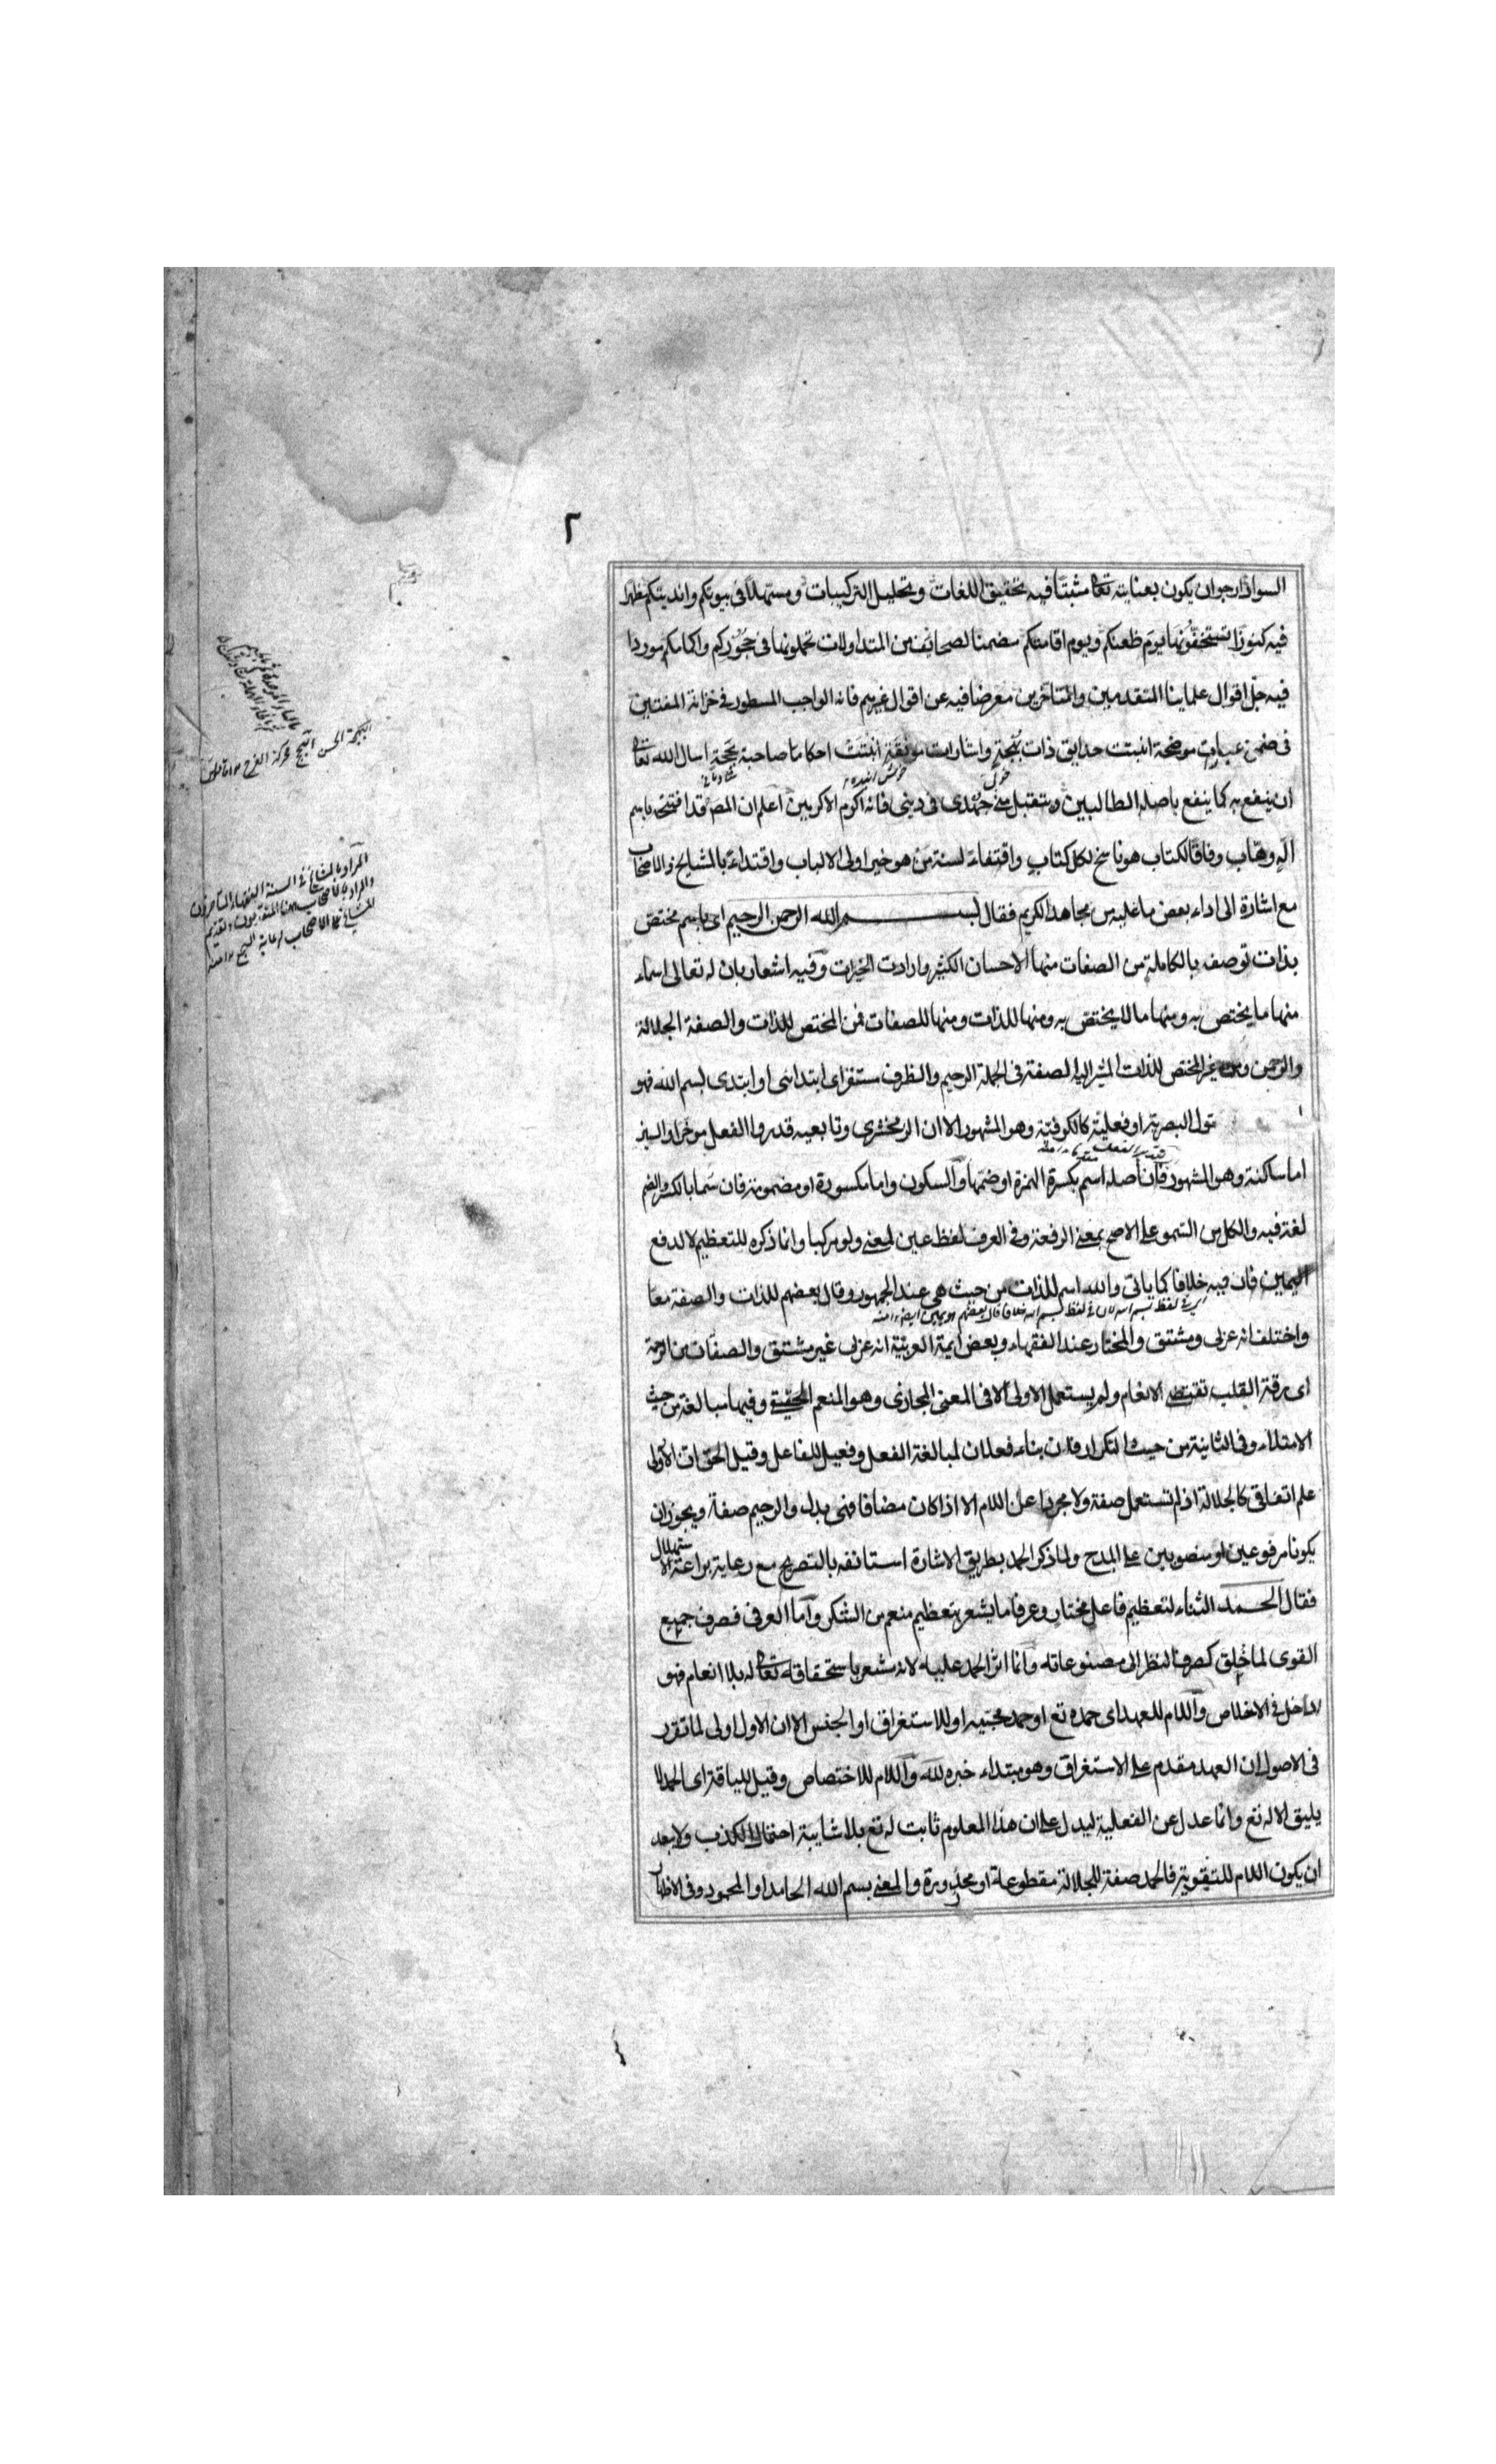 ٢
السواد ارجو ان يكون بعنايته تعا مثبتًا فيه تحقيق اللغات وتحليل التركيبات ومستهلاً في بيوتكم وانديتكم مظهرا
فيه كنوزا تستخفونها يوم ظعنكم ويوم اقامتكم مضمنا لصحايف من المتداولات تحملونها في حجوركم واكمامكم موردا
فيه جل اقوال علماينا المتقدمين والمتأخرين معرضا فيه عن اقوال غيرهم فانه الواجب المسطور في خزانة المفتين
في ضمن عبارات موضحة انبتت حدايق ذات بهجة واشارات مونقة انبتت احكاما صاحبة بجحة اسال الله تعا
ان ينفع به كما ينفع باصله الطالبين ويتقبل مني جهدى في دينى فانه اكرم الاكرمين اعلم ان المص قد افتتحه باسم
اله وهاب وفاقا لكتاب هو ناسخ لكل كتاب واقتفاء لسنة من هو خير اولى الالباب واقتداء بالمشايخ والاصحاب
مع اشارة الى اداء بعض ما عليه من محامد الكريم فقال بسم الله الرحمن الرحيم اى باسم مختص
بذات توصف بالكاملة من الصفات منها الاحسان الكثير وارادت الخيرات وفيه اشعار بان له تعالى اسماء
منها ما يختص به ومنها ما لا يختص به ومنها للذات ومنها للصفات فمن المختص للذات والصفة الجلالة
والرحمن وغير المختص للذات المشير اليه الصفة في الجملة الرحيم والظرف مستقر اى ابتدائى او ابتدى بسم الله فهو
قول البصرية او فعلية كالكوفية وهو المشهور الا ان الزمخشرى وتابعيه قدروا الفعل موخرا والسين
اما ساكنة وهو المشهور فان اصله اسم بكسرة الهمزة او ضمها والسكون واما مكسورة او مضمومة فان سما بالكسر والضم
لغة فيه والكل من السمو على الاصح بمعنى الرفعة وفى العرف لفظ عين لمعنى ولو مركبا وانما ذكره للتعظيم لا لدفع
اليمين فان فيه خلافا كما ياتى والله اسم للذات من حيث هى عند الجمهور وقال بعضهم للذات والصفة معا
واختلف انه عربى ومشتق والمختار عند الفقهاء وبعض ايمة العربية انه عربى غير مشتق والصفات من الرحمة
اى رقة القلب تقتضى الانعام ولم يستعمل الاولى الا فى المعنى المجازى وهو المنعم الحقيقى وفيها مبالغة من حيث
الامتلاء وفى الثانية من حيث التكرار فان بناء فعلان لمبالغة الفعل وفعيل للفاعل وقيل الحق ان الاولى
علم اتفاقى كالجلالة اذ لم تستعمل صفة ولا مجردا عن اللام الا اذا كان مضافا فهى بدل والرحيم صفة ويجوز ان
يكونا مرفوعين او منصوبين على المدح ولما ذكر الحمد بطريق الاشارة استانفه بالتصريح مع رعاية براعة الاستهلال
فقال الحمد الثناء لتعظيم فاعل مختار وعرفا ما يشعر بتعظيم منعم من الشكر واما العرفى فصرف جميع
القوى لما خلق كصرف النظر الى مصنوعاته وانما اثر الحمد عليه لانه مشعر باستحقاقه تعا له بلا انعام فهو
داخل فى الاخلاص واللام للعهد اى حمده تع او حمد محبيه او للاستغراق او الجنس الا ان الاول اولى لما تقرر
فى الاصول ان العهد مقدم على الاستغراق وهو مبتداء خبره لله واللام للاختصاص وقيل للياقة اى الحمد لا
يليق الا له تع وانما عدل عن الفعلية ليدل على ان هذا المعلوم ثابت له تع بلا شايبة احتمال الكذب ولا يبعد
ان يكون اللام للتقوية فالحمد صفة للجلالة مقطوعة او مجرورة والمعنى بسم الله الحامد او المحمود وفى الاظهار
البهجة الحسن البجح محركة الفرح
المراد بالمشايخ فى السنة الفقهاء المتاخرون
والمراد بالاصحاب هنا المتقدمون وتقديم
المشايخ على الاصحاب لرعاية السجع منه